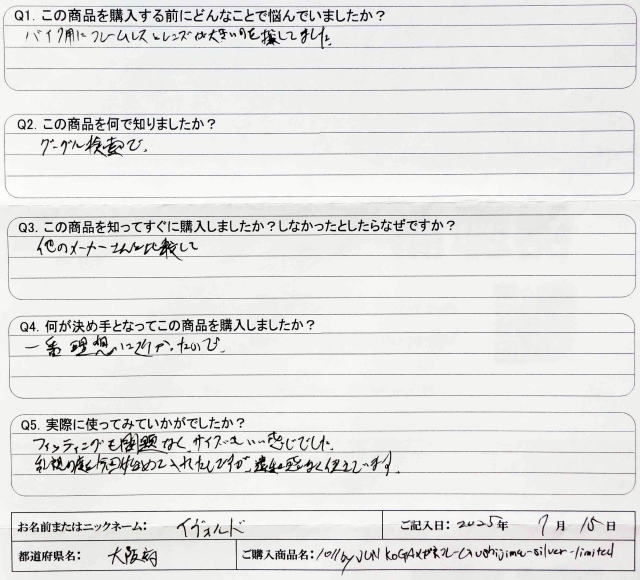 Q1. この商品を購入する前にどんなことで悩んでいましたか？
バイク用にフレームレスとレンズが大きいのを探してました
Q2. この商品を何で知りましたか？
グーグル検索で、
Q3. この商品を知ってすぐに購入しましたか？しなかったとしたらなぜですか？
他のメーカーさんと比較して
Q4. 何が決め手となってこの商品を購入しましたか？
一番理想に近かったので、
Q5. 実際に使ってみていかがでしたか？
フィッティングも問題なく、サイズもいい感じでした。
乱視の度も今回はじめて入れたんですが、違和感なく使えています。
お名前またはニックネーム: イヴォルド
ご記入日: 2025年 7月 15日
都道府県名: 大阪府
ご購入商品名: 1011 by JUN KOGA ushijima-silver-limited